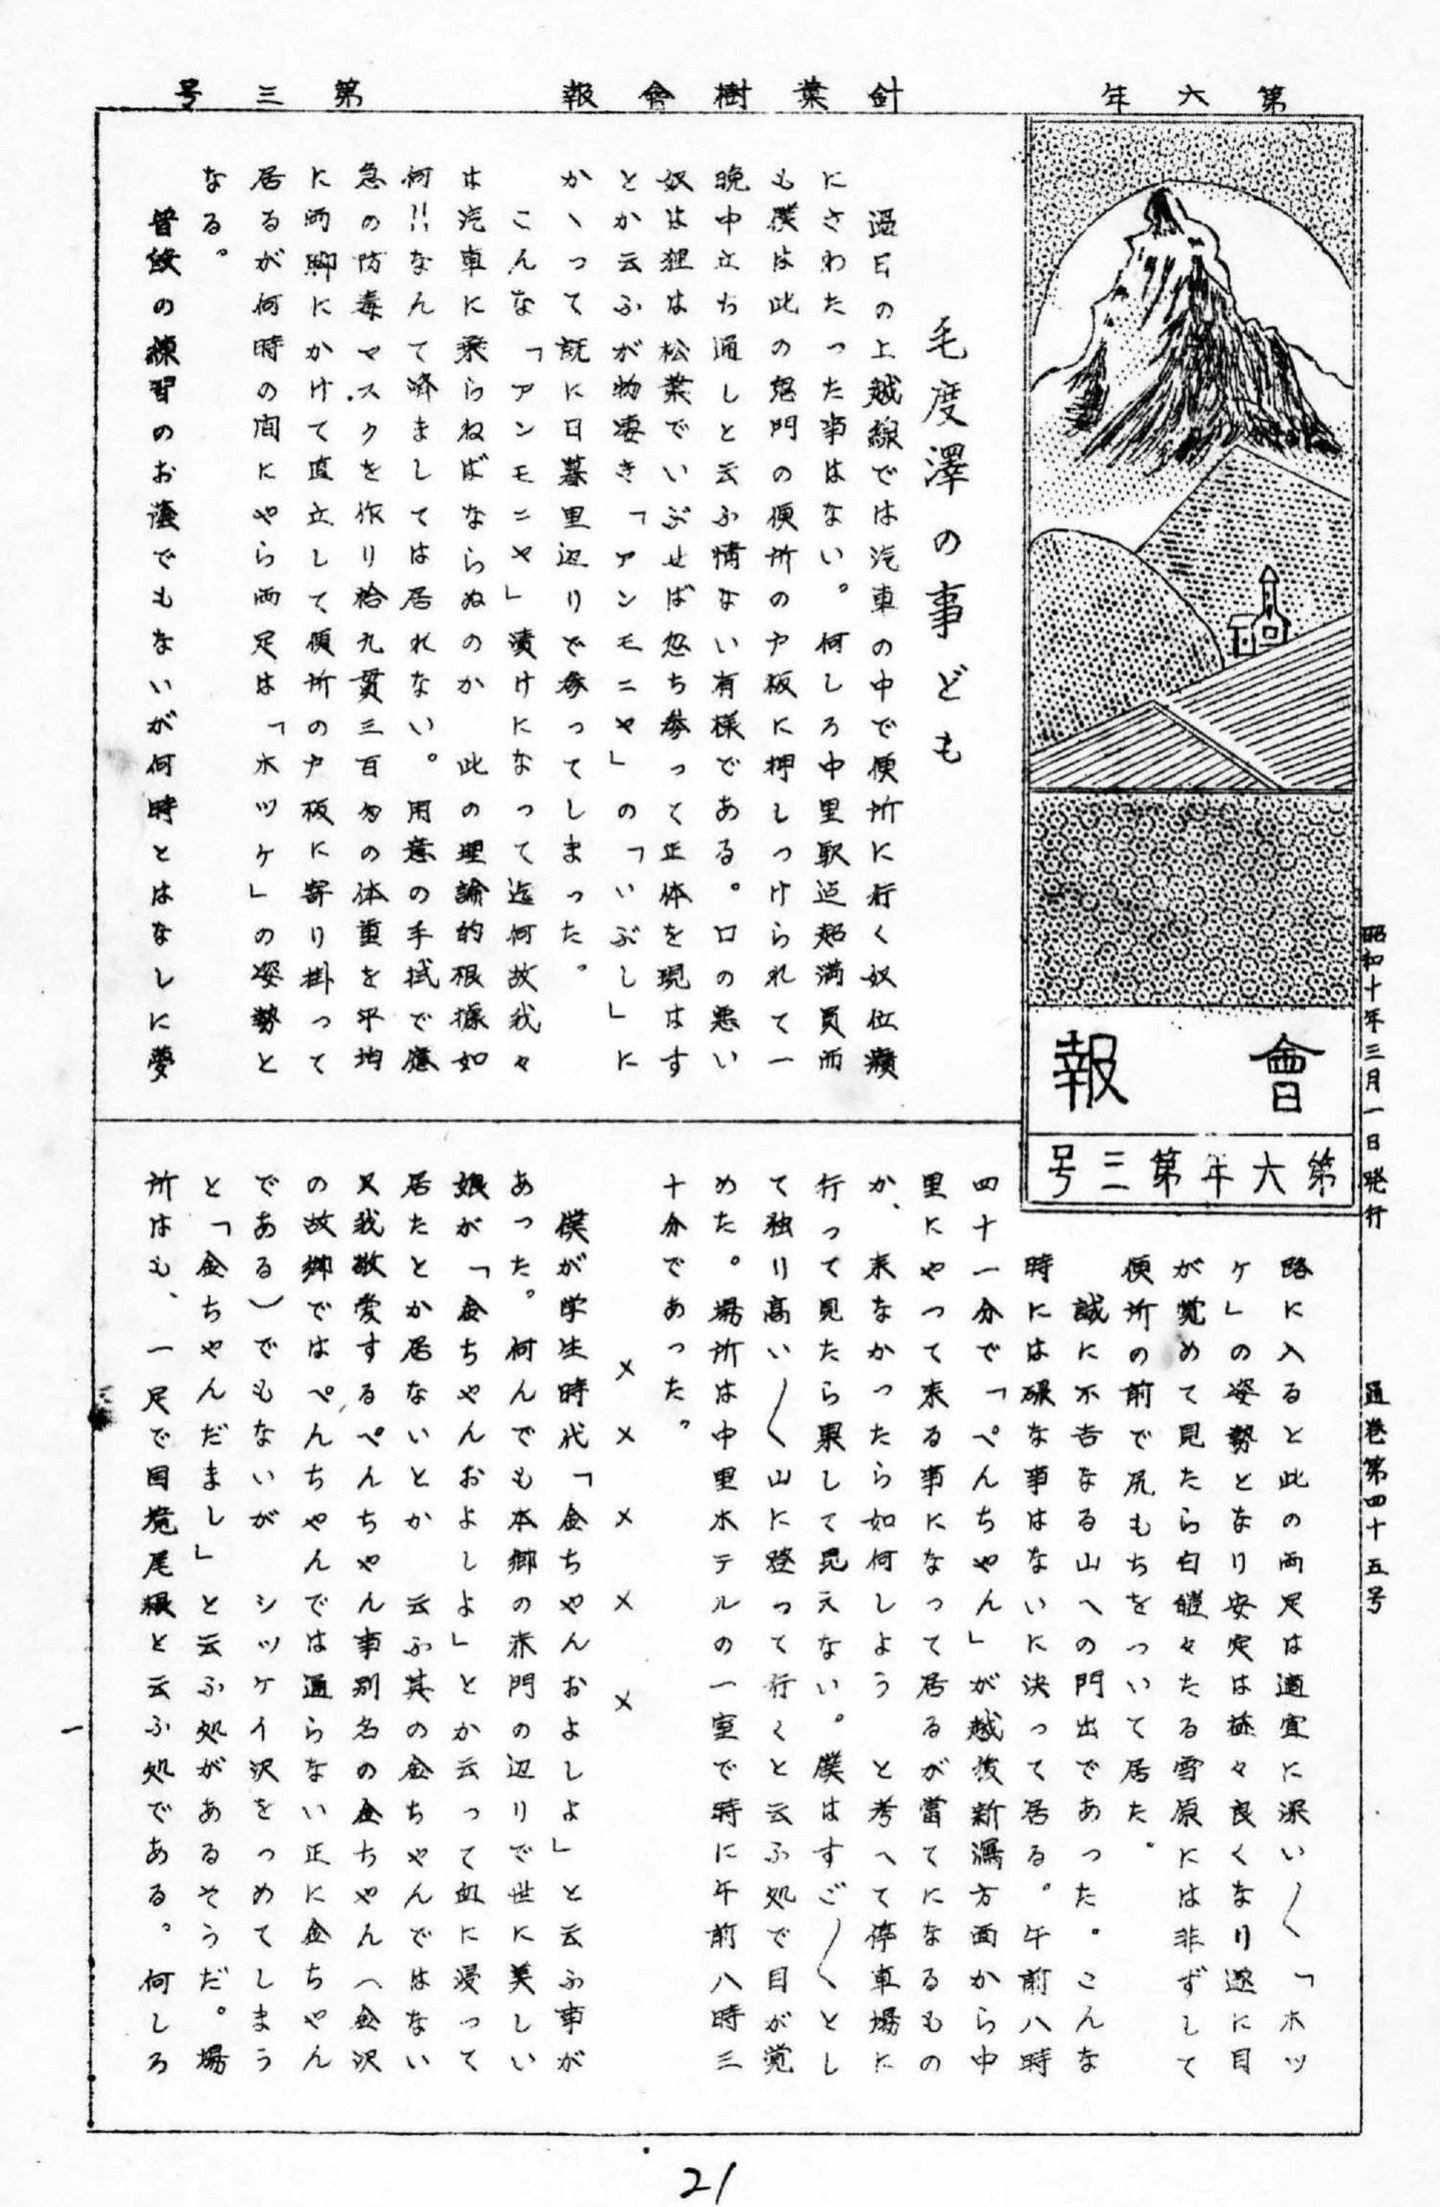 第六年　針葉樹會報　第三号
會報
第六年第三号
昭和十年三月一日発行　通巻第四十五号
毛度澤の事ども
過日の上越線では汽車の中で便所に行く奴位癪
にさわたった事はない。何しろ中里駅迄超満員而
も僕は此の怒門の便所の戸板に押しつけられて一
晩中立ち通しと云ふ情ない有様である。口の悪い
奴は狸は松葉でいぶせば忽ち参って正体を現はす
とか云ふが物凄き「アンモニヤ」の「いぶし」に
かゝって既に日暮里辺りで参ってしまった。
こんな「アンモニヤ」漬けになって迄何故我々
は汽車に乗らねばならぬのか　此の理論的根據如
何!!なんて済ましては居れない。用意の手拭で應
急の防毒マスクを作り拾九貫三百匁の体重を平均
に両脚にかけて直立して便所の戸板に寄り掛って
居るが何時の間にやら両足は「ホツケ」の姿勢と
なる。
曾峻の練習のお蔭でもないが何時とはなしに夢
路に入ると此の両足は適宜に深い〳〵「ホツ
ケ」の姿勢となり安定は益々良くなり遂に目
が覚めて見たら白皚々たる雪原には非ずして
便所の前で尻もちをついて居た。
誠に不吉なる山への門出であった。こんな
時には碌な事はないに決って居る。午前八時
四十一分で「ぺんちやん」が越後新潟方面から中
里にやって来る事になって居るが當てになるもの
か、来なかったら如何しよう　と考へて停車場に
行って見たら果して見えない。僕はすご〳〵とし
て独り高い〳〵山に登って行くと云ふ処で目が覚
めた。場所は中里ホテルの一室で時に午前八時三
十分であった。
×　×　×　×　×
僕が学生時代「金ちやんおよしよ」と云ふ事が
あった。何んでも本郷の赤門の辺りで世に美しい
娘が「金ちやんおよしよ」とか云って血に浸って
居たとか居ないとか　云ふ其の金ちやんではない
又我敬愛するぺんちやん事別名の金ちやん（金沢
の故郷ではぺんちやんでは通らない正に金ちやん
である）でもないが　シツケイ沢をつめてしまう
と「金ちやんだまし」と云ふ処があるそうだ。場
所はも、一足で国境尾根と云ふ処である。何しろ
一
21